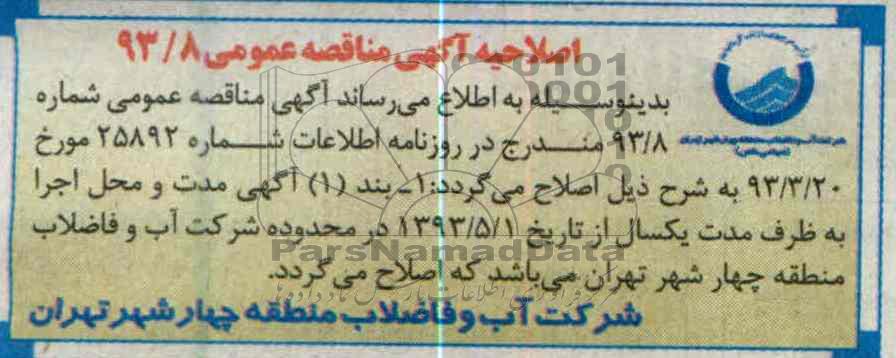 اصلاحیه آگهی مناقصه عمومی ۹۳/۸
بدینوسیله به اطلاع می‌رساند آگهی مناقصه عمومی شماره
۹۳/۸ مندرج در روزنامه اطلاعات شماره ۲۵۸۹۲ مورخ
۹۳/۳/۲۰ به شرح ذیل اصلاح می‌گردد:۱ـ بند (۱) آگهی مدت و محل اجرا
به ظرف مدت یکسال از تاریخ ۱۳۹۳/۵/۱ در محدوده شرکت آب و فاضلاب
منطقه چهار شهر تهران می‌باشد که اصلاح می گردد.
ParsNamadData
شرکت آب و فاضلاب منطقه چهار شهر تهران